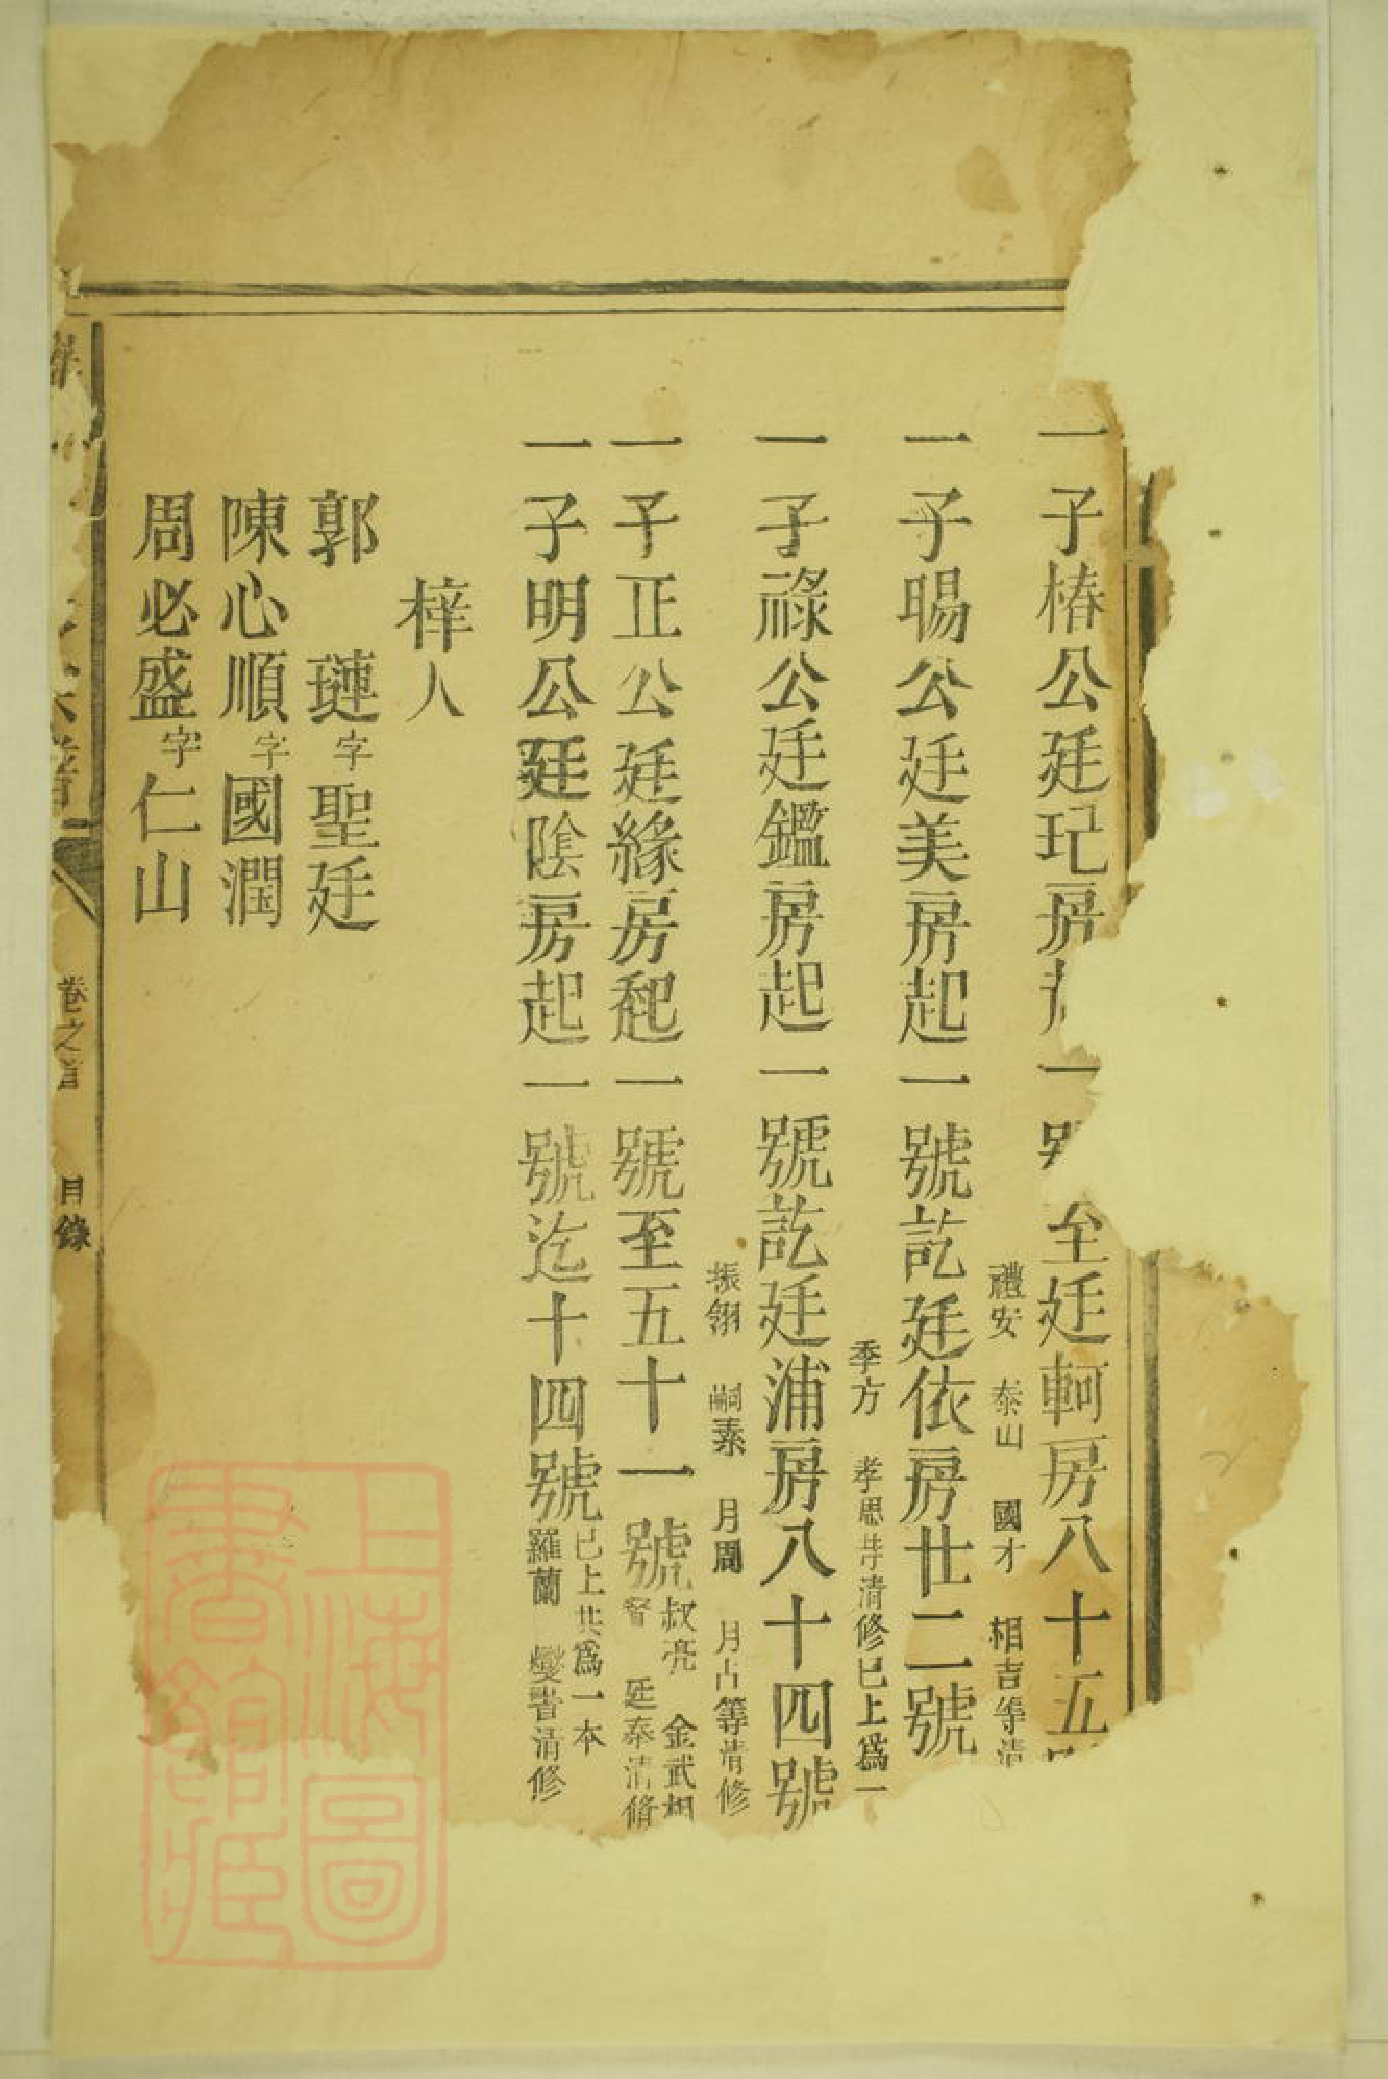 一子椿公廷玘房 一 至廷軻房八十五
禮安 泰山 國才 相吉等清
一子暘公廷美房起一號訖廷依房廿二號
季方 孝思等清修已上爲一
一子祿公廷鑑房起一號訖廷浦房八十四號
振翎 嗣素 月周 月占等清修
一子正公廷緣房起一號至五十一號
叔亮 金武相
督 廷泰清脩
一子明公廷陰房起一號迄十四號
已上共爲一本
羅蘭 燮書清修
梓人
郭 璉字聖廷
陳心順字國潤
周必盛字仁山
卷之首 目錄
上海圖書館藏